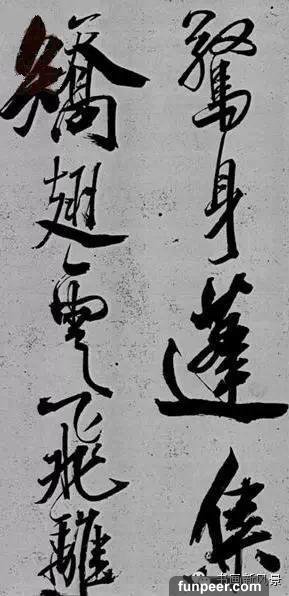 驚身蓬集
矯翅雪飛離
书画新风景
funpeer.com